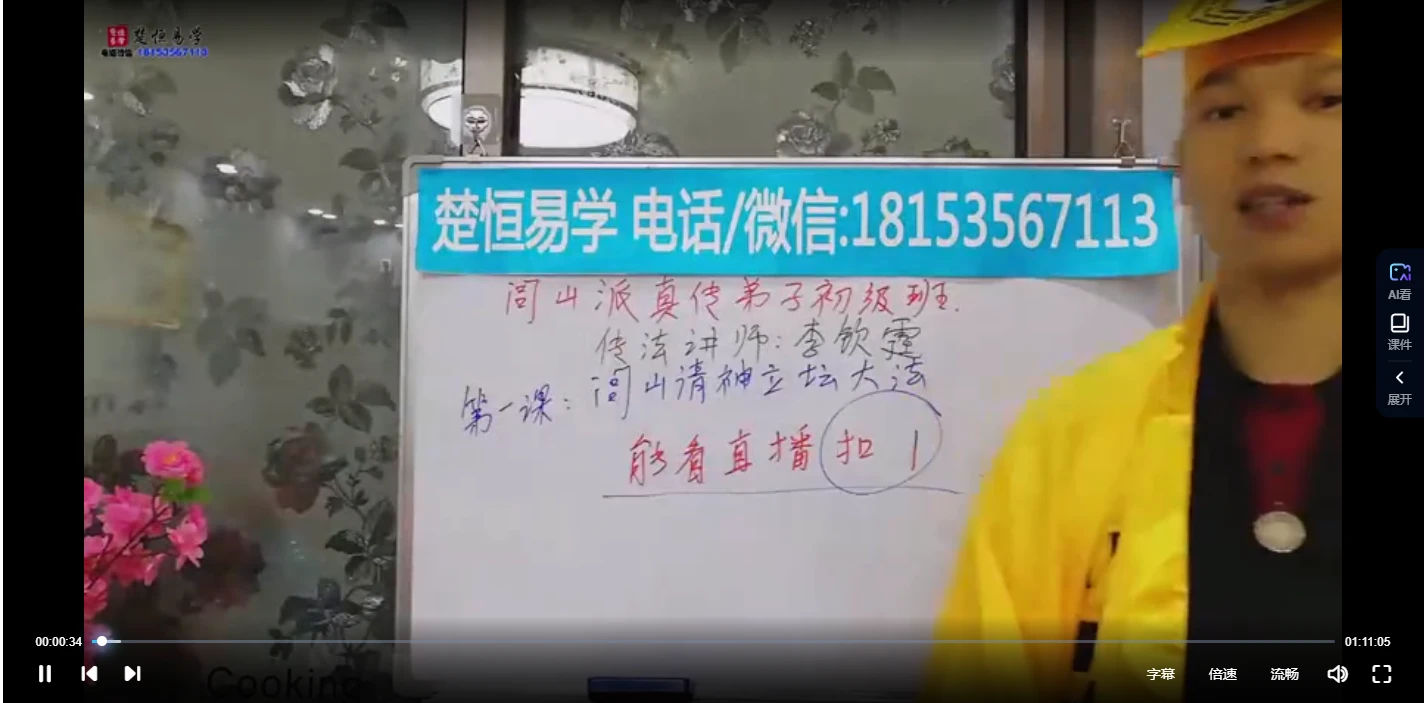 楚恒易学
18153567113
楚恒易学 电话/微信:18153567113
闾山派真传弟子初级班.
传法讲师:李钦霆
第一课: 闾山请神立坛大法
能看直播扣1
AI看
课件
展开
00:00:34
01:11:05
Cooking
字幕 倍速 流畅